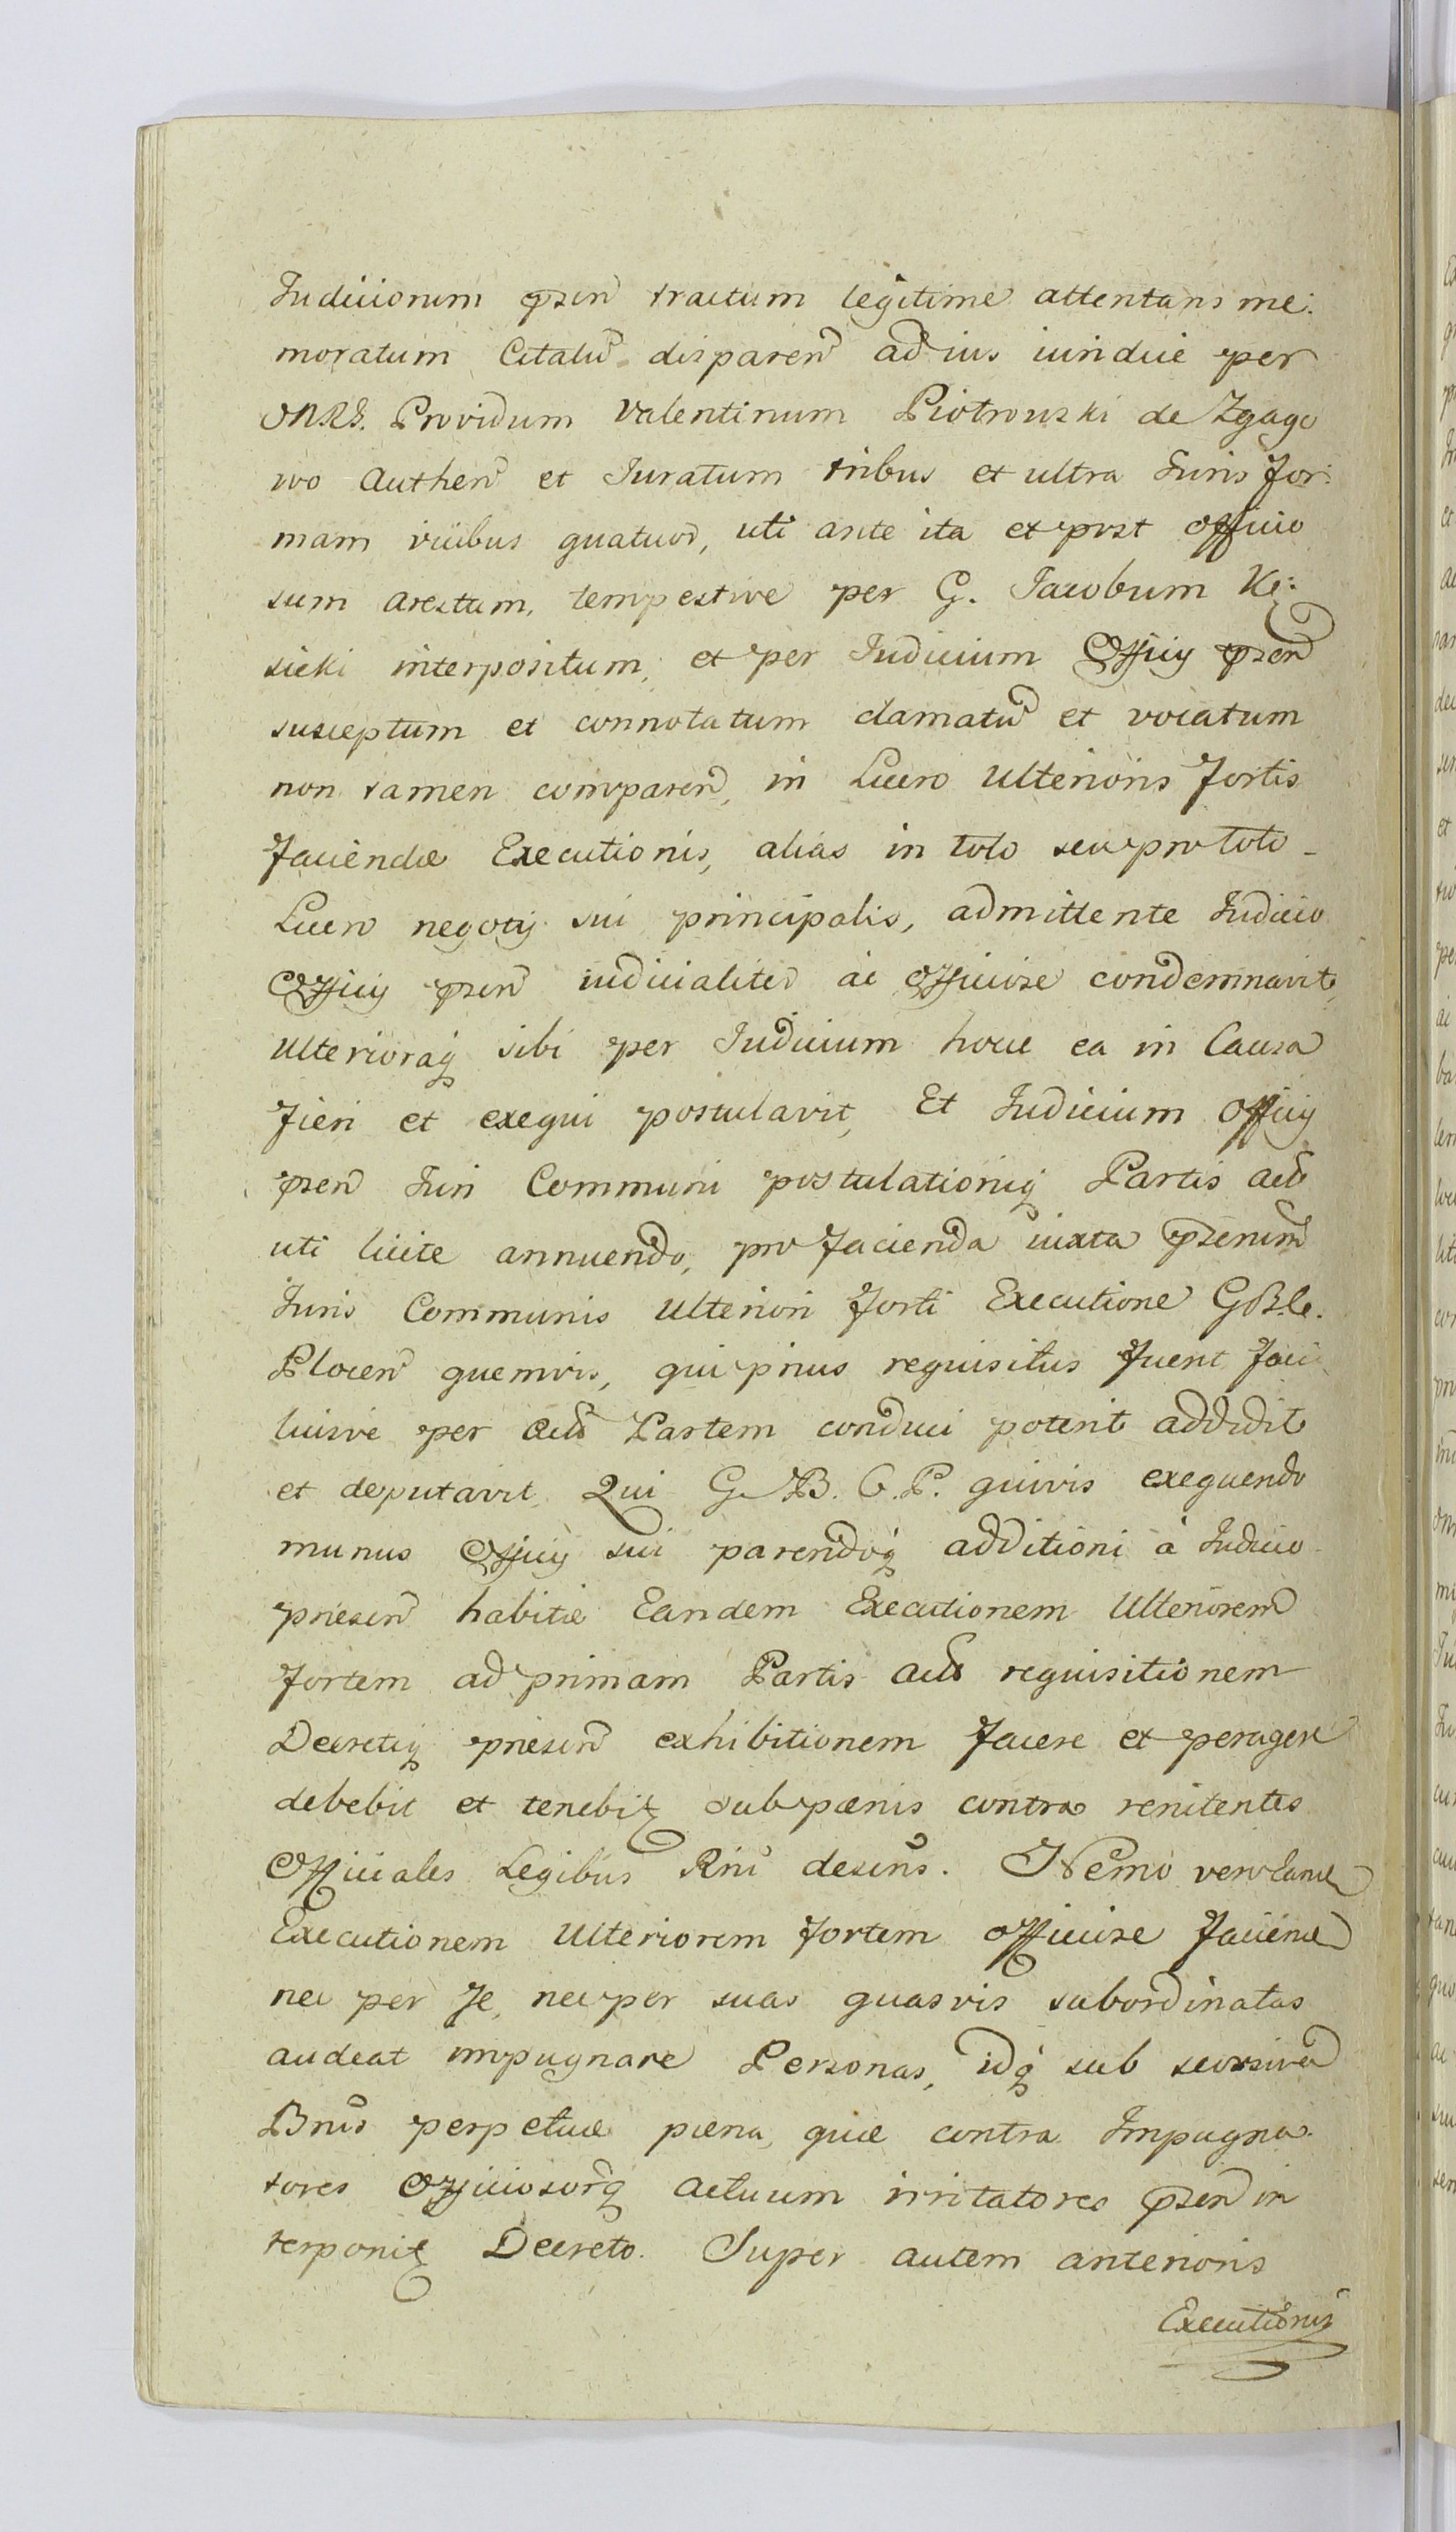 Judiciorum præsen tractum legitime attentans me:
moratum Citatu disparen ad ius iuridice per
MRG. Providum Valentinum Piotrowski de Zgago
wo Authen et Juratum tribus et ultra Juris for:
mam vicibus quatuor, uti ante ita et post officio
sum arestum, tempestive per G. Jacobum Kę:
sicki interpositum, et per Judicium Officij præsen
susceptum et connotatum clamatu et vocatum
non tamen comparen, in Lucro Ulterioris fortis
faciendæ Executionis, alias in toto seu pro toto
Lucro negotij sui principalis, admittente Judicio
Officij præsen iudicialiter ac officiose condemnavit,
Ulterioraq sibi per Judicium hocce ea in Causa
fieri et exequi postulavit, Et Judicium Officij
præsen Juri Communi postulationiq Partis act
uti licite annuendo, pro facienda iuxta præsenum
Juris Communis Ulteriori forti Executione GBle.
Plocen quemvis, qui prius requisitus fuerit faci
liusve per act Partem conduci poterit addidit
et deputavit, Qui G. B. C. P. quivis exequendo
munus Officij sui parendoq additioni à Judicio
præsen habitæ Eandem Executionem Ulteriorem
fortem ad primam Partis act requisitionem
Decretiq præsen exhibitionem facere et peragere
debebit et tenebit sub pœnis contra renitentes
Officiales Legibus Rni descris. Nemo vero tamen
Executionem Ulteriorem fortem officiose facien
nec per se, nec per suas quasvis subordinatas
audeat impugnare Personas, idq sub seorsiva
Bnis perpetuæ pœna, quæ contra Impugna
tores officiosorq actuum irritatores præsen in
terponit Decreto. Super autem anterioris
Executionis